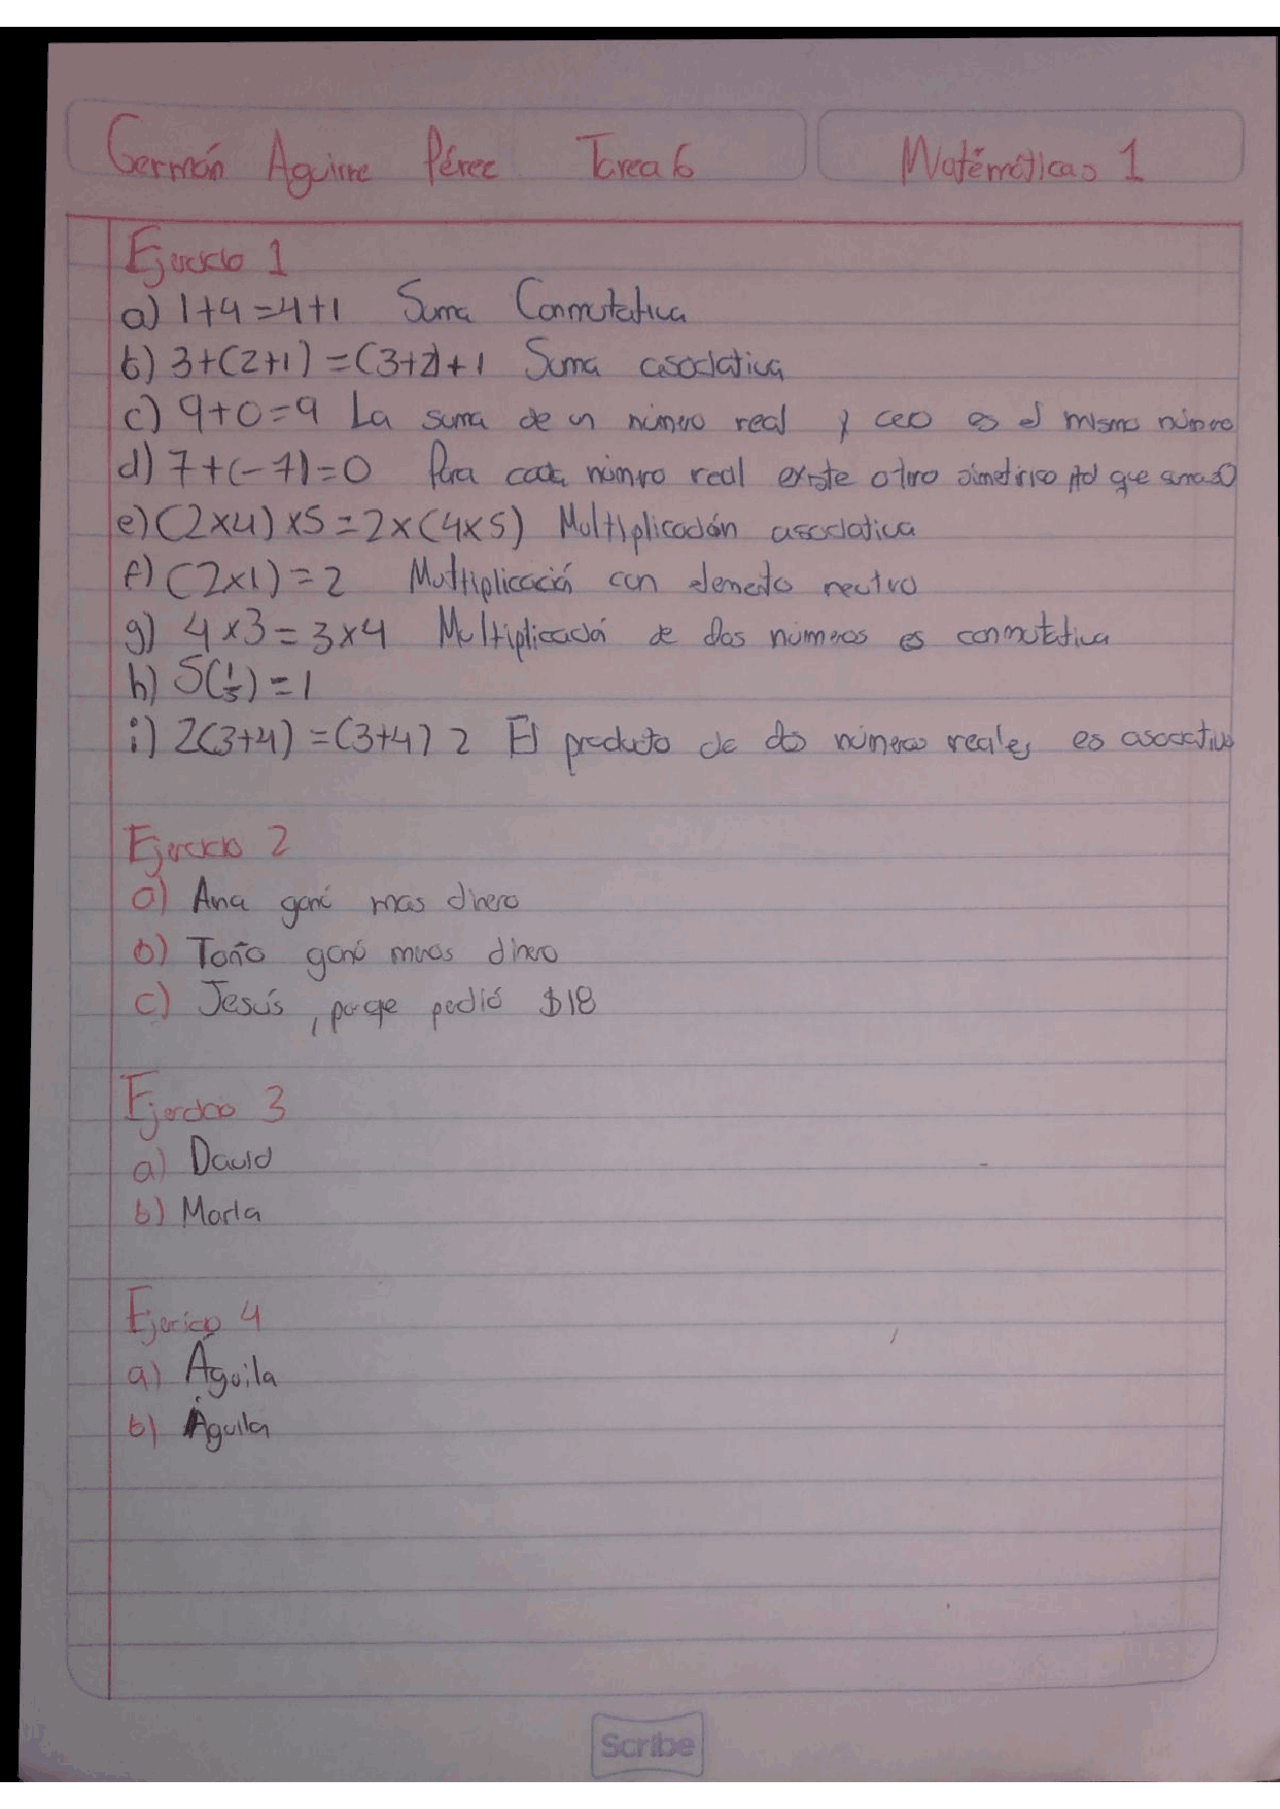 Germán Aguirre Pérez Tarea 6 Matématicas 1
Ejercicio 1
a) 1+4=4+1 Suma Conmutativa
b) 3+(2+1)=(3+2)+1 Suma asociativa
c) 9+0=9 La suma de un número real y cero es el mismo número
d) 7+(-7)=0 Para cada número real existe otro simétrico tal que suma 0
e) (2x4)x5=2x(4x5) Multiplicación asociativa
f) (2x1)=2 Multiplicación con elemento neutro
g) 4x3=3x4 Multiplicación de dos números es conmutativa
h) 5(1/5)=1
i) 2(3+4)=(3+4)2 El producto de dos números reales es asociativo
Ejercicio 2
a) Ana ganó mas dinero
b) Toño ganó menos dinero
c) Jesús, porque perdió $18
Ejercicio 3
a) David
b) María
Ejercico 4
a) Águila
b) Águila
Scribe